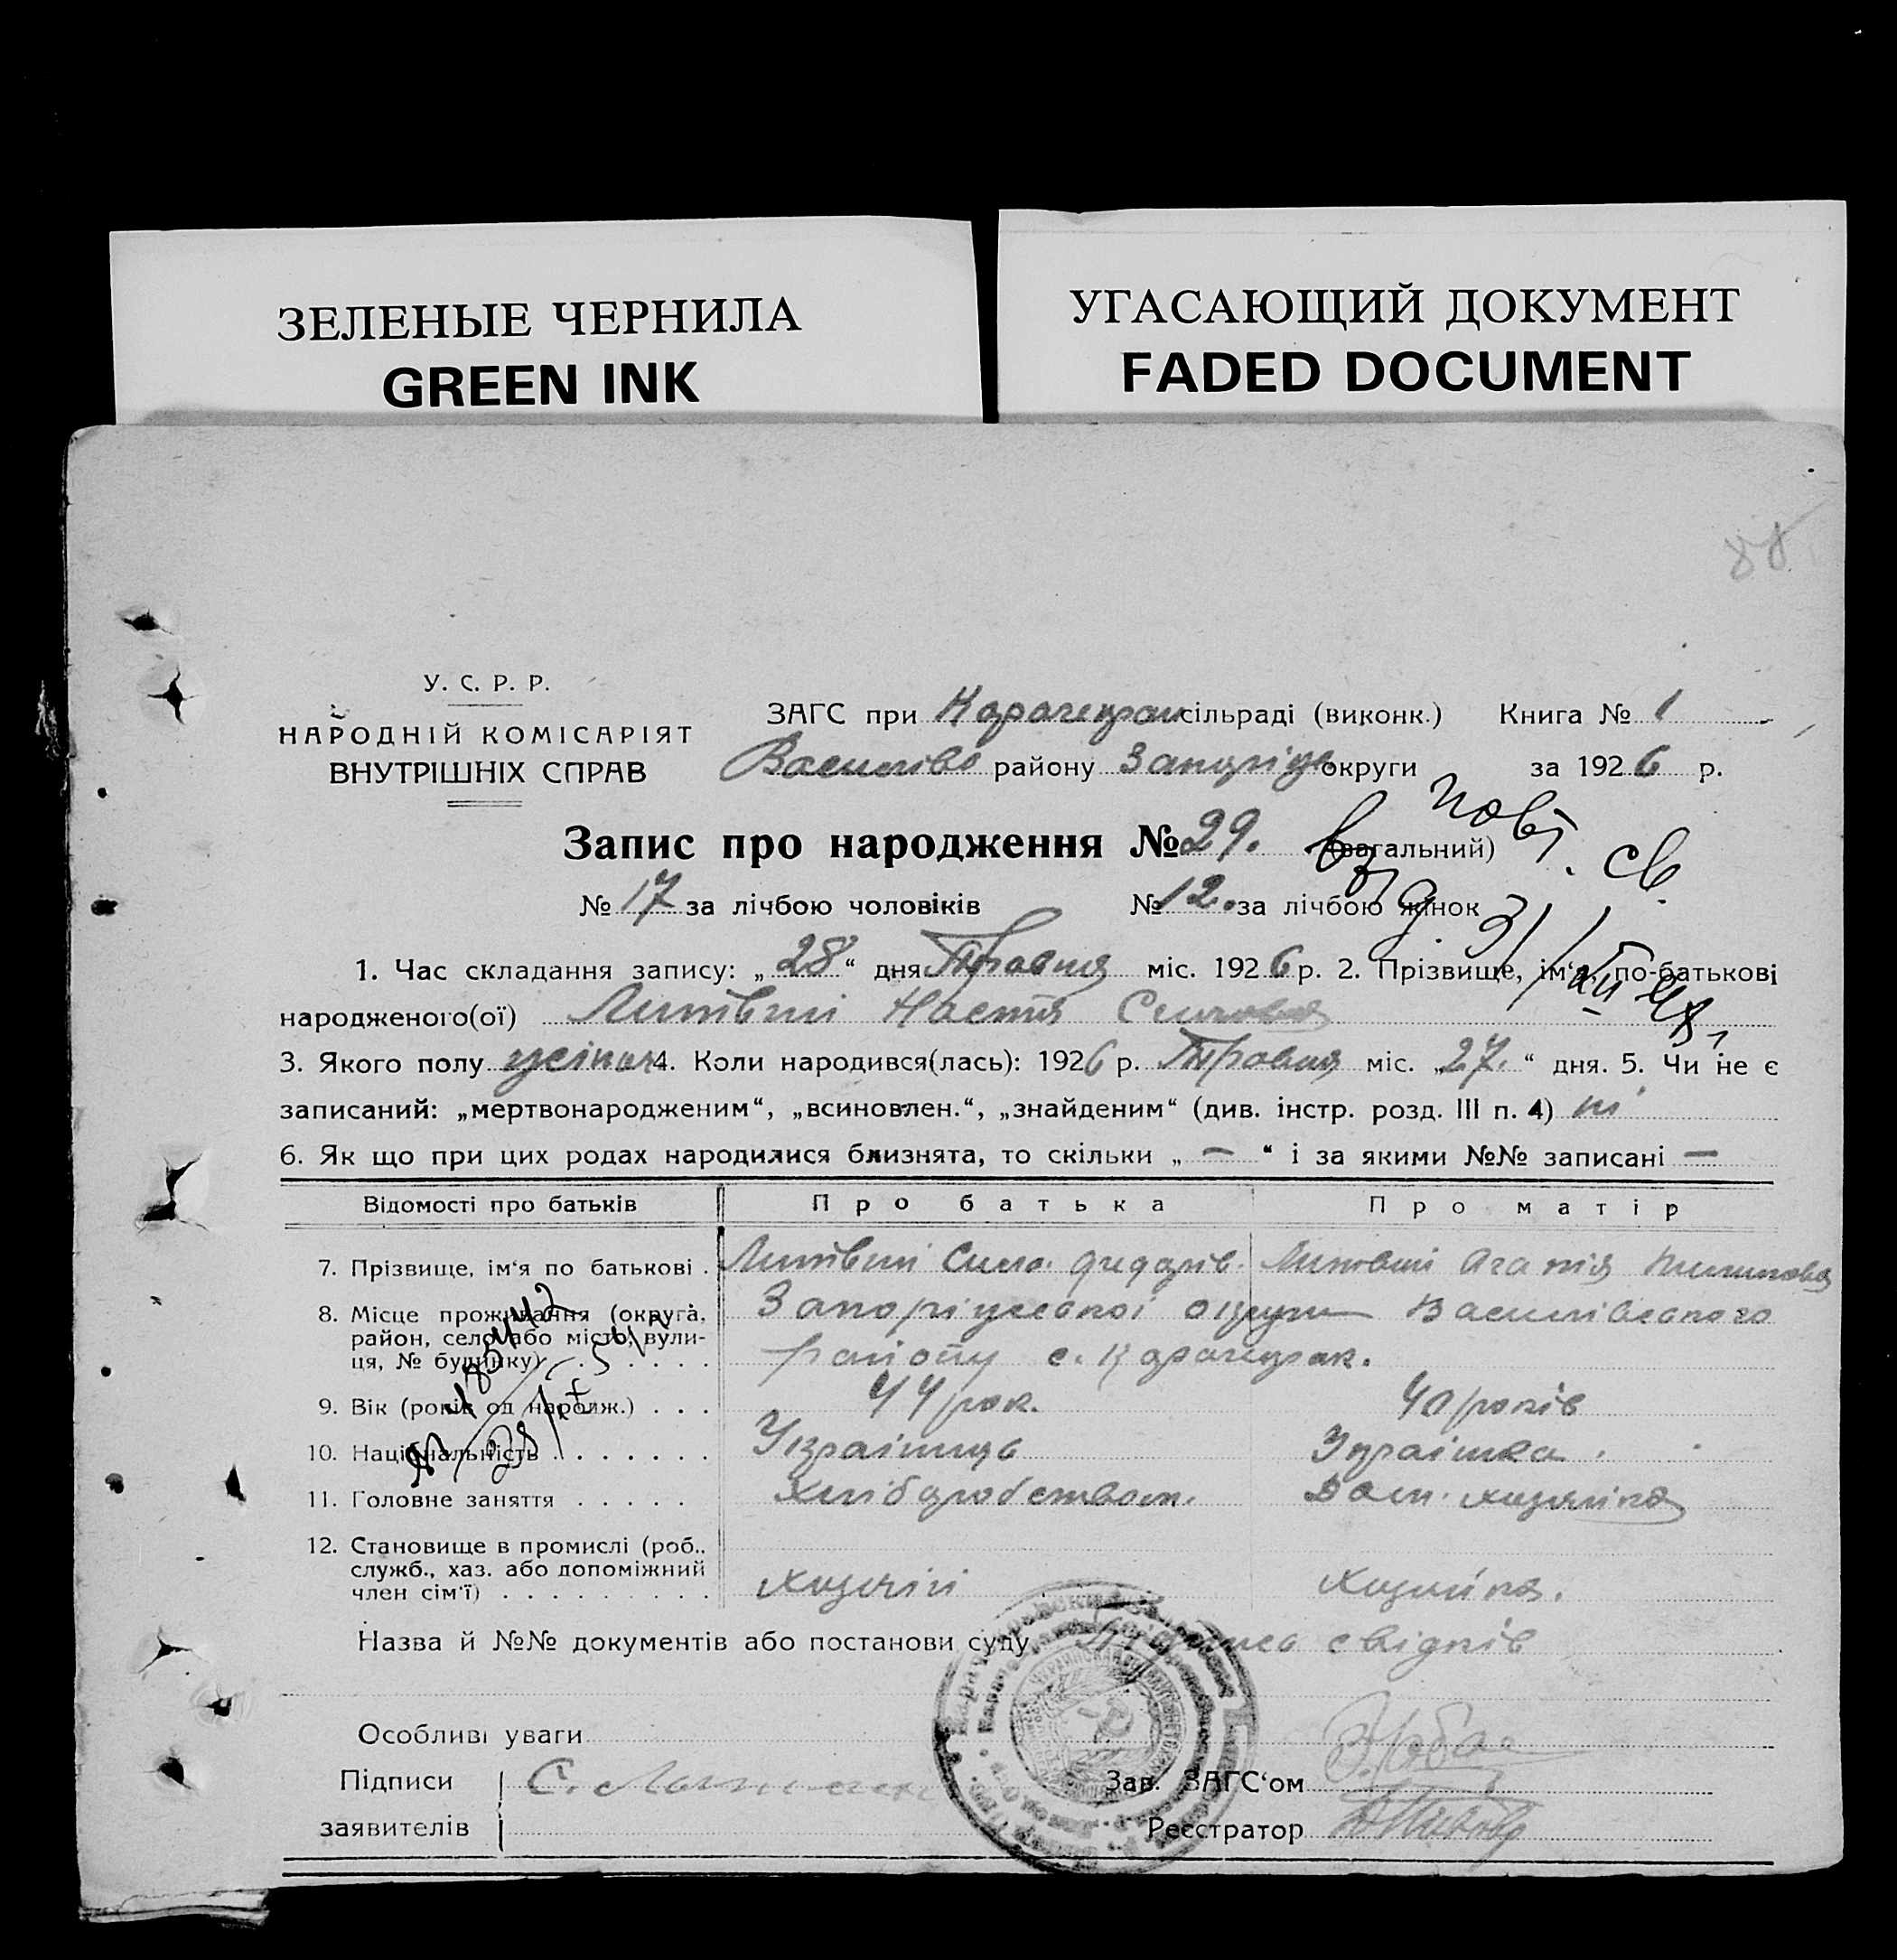 ЗЕЛЕНЫЕ ЧЕРНИЛА
GREEN INK
УГАСАЮЩИЙ ДОКУМЕНТ
FADED DOCUMENT
88
У. С. Р. Р.
НАРОДНІЙ КОМІСАРІЯТ
ВНУТРІШНІХ СПРАВ
ЗАГС при Карачекрак сільраді (виконк.) Книга № 1
Василівс району Запоріць округи за 1926 р.
Запис про народження № 29. (загальний)
№ 17 за лічбою чоловіків № 12. за лічбою жінок
повт. св.
1. Час складання запису: „28“ дня Травня міс. 1926 р. 2. Прізвище, ім'я, по-батькові
народженого(ої) Литвин Настя
3. Якого полу жіноч 4. Коли народився(лась): 1926 р. Травня міс. „27.“ дня. 5. Чи не є
записаний: „мертвонародженим“, „всиновлен.“, „знайденим“ (див. інстр. розд. III п. 4) ні
6. Як що при цих родах народилися близнята, то скільки „ — “ і за якими №№ записані —
Відомості про батьків Про батька Про матір
7. Прізвище, ім'я по батькові . Литвин Сило. Федорів. Литвин Агапія Пилипова
8. Місце проживання (округа, район, село або місто, вулиця, № будинку) . . . . . . Запоріцької округи Василівського
району с. Карачекрак.
9. Вік (років од народж.) . . . 44 рок. 40 років
10. Національність . . . . . . . Українць Українка.
11. Головне заняття . . . . . Хліборобством. Дом. хозяйка
12. Становище в промислі (роб., служб., хаз. або допоміжний член сім'ї) . . . . . . . . . хозяїн хозяйка.
Назва й №№ документів або постанови суду свідків
Особливі уваги
Підписи
заявителів
С. Литвин
Зав. ЗАГС'ом
Реєстратор